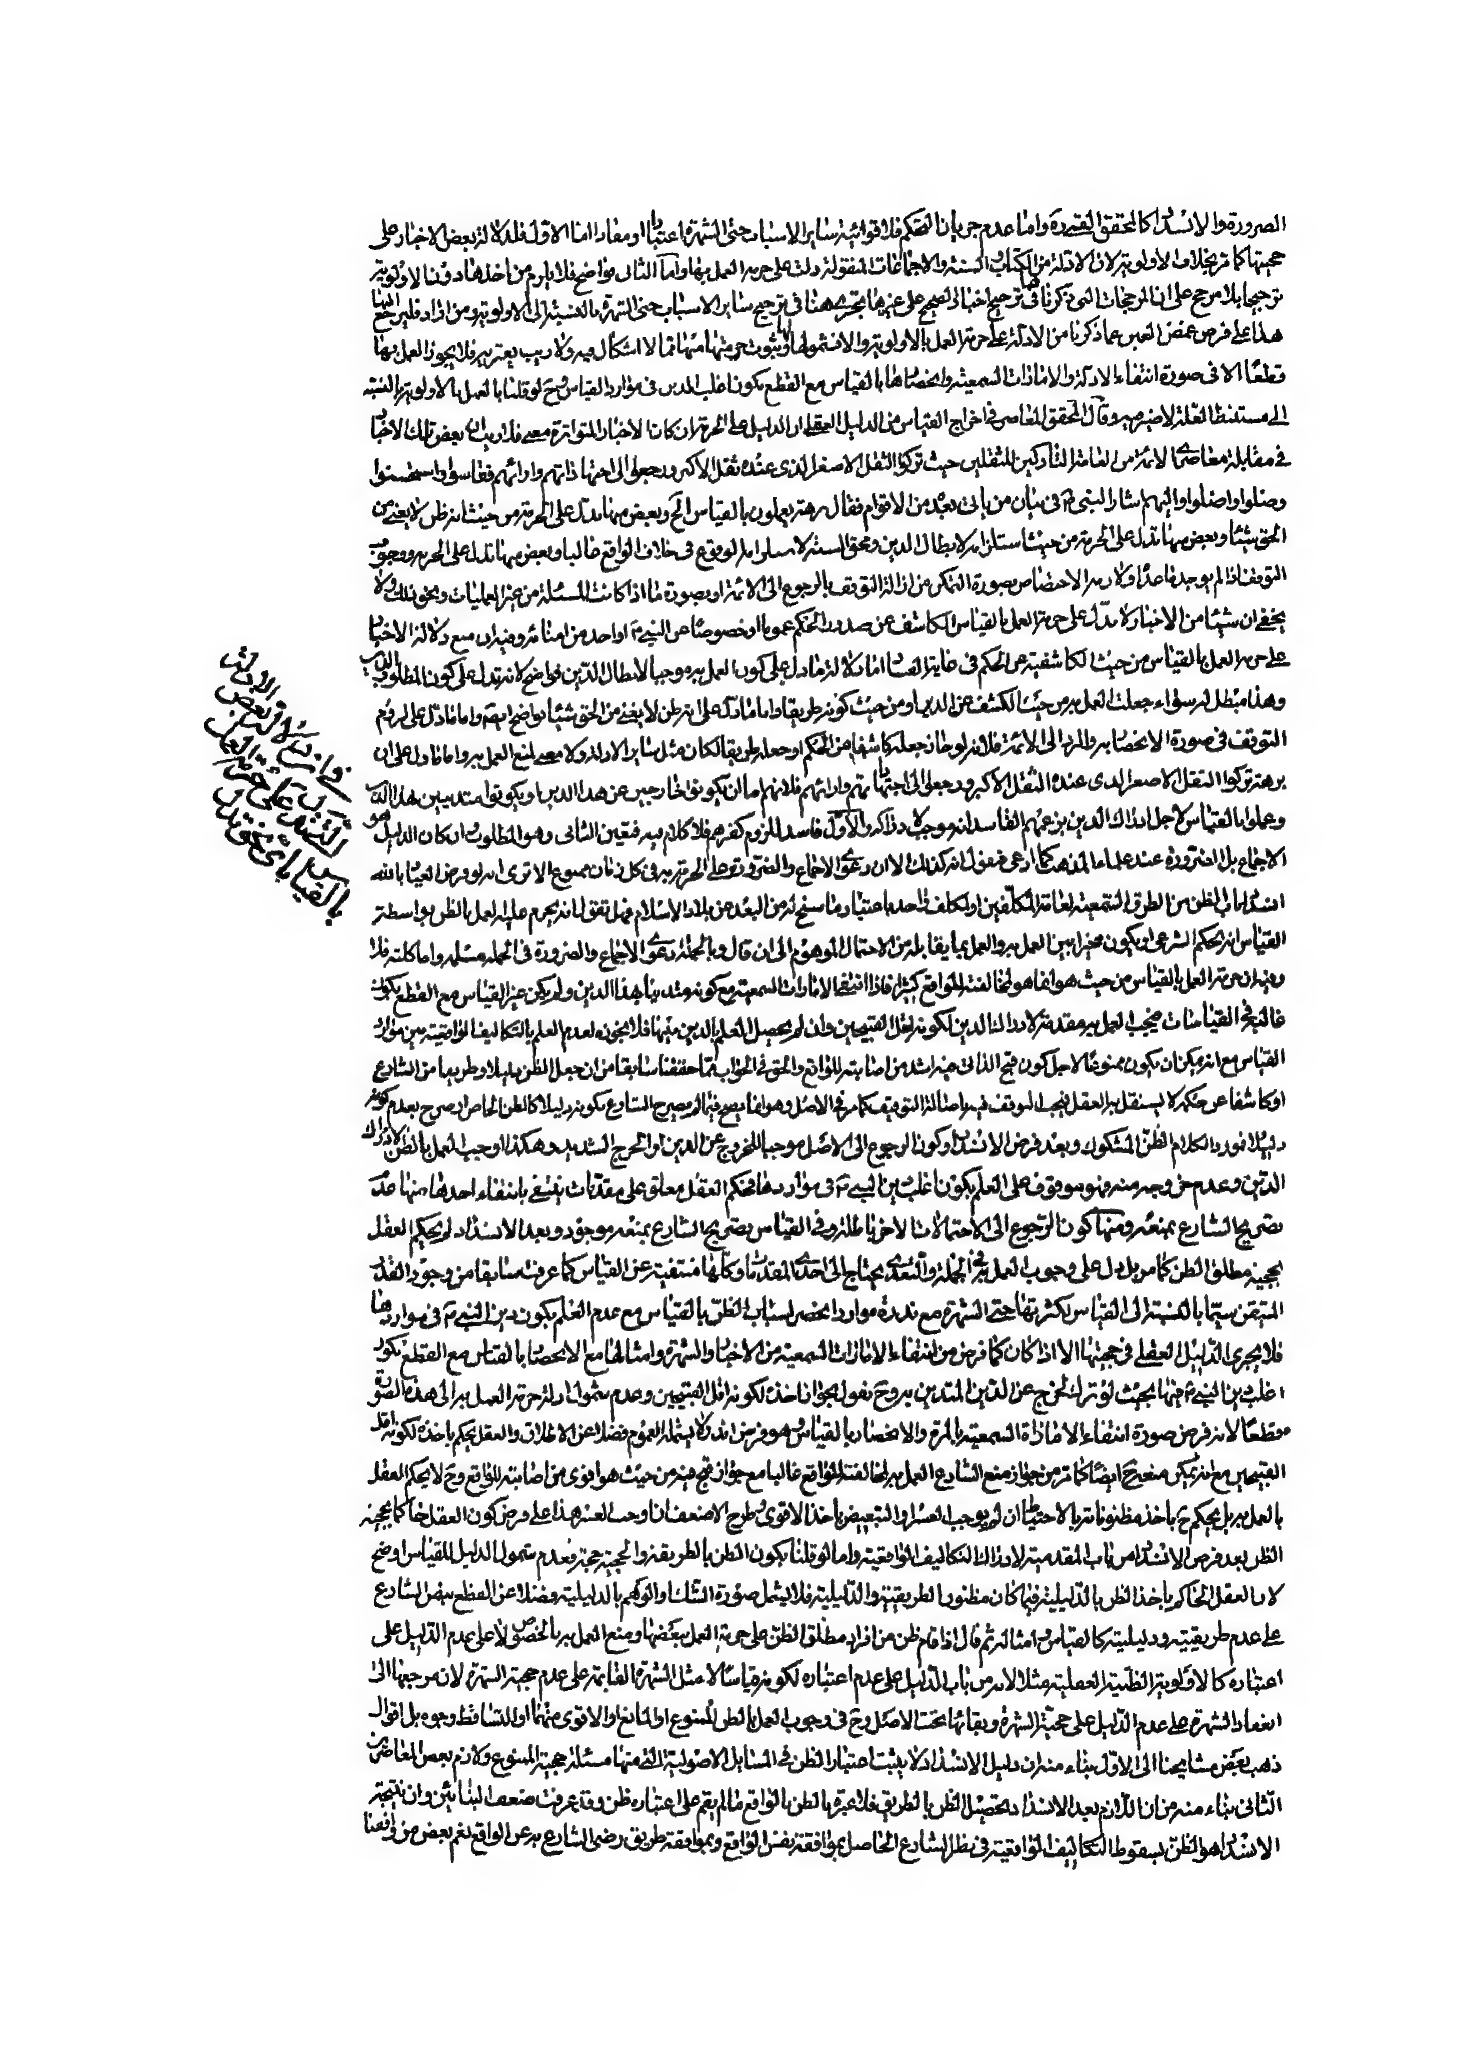 الضرورة والانسداد كالمحقق القمى ره واما عدم جريان التحكم فلاقوائية ساير الاسباب حتى الشهرة اعتبارا او مفادا اما الاول فلدلالة بعض الاخبار على
حجيتها كما مر بخلاف الاولوية لان الادلة من الكتاب والسنة والاجماعات المنقولة دلت على حرمة العمل بها واما الثانى فواضح فلا يلزم من اخذها دون الاولوية
ترجيحا بلا مرجح على ان المرجحات التى ذكرناها فى ترجيح اخبار الصحيح على غيرها يجرى هنا فى ترجيح ساير الاسباب حتى الشهرة بالنسبة الى الاولوية ومن اراد فليراجع اليها
هذا على فرض غمض العين عما ذكرنا من الادلة على حرمة العمل بالاولوية والا فشمولها لها وثبوت حرمتها منها مما لا اشكال فيه ولا ريب يعتريه فلا يجوز العمل بها
قطعا الا فى صورة انتفاء الادلة والامارات السمعية وانحصارها بالقياس مع القطع بكون اغلب الدين فى موارد القياس وح لو قلنا بالعمل بالاولوية بالنسبة
الى مستنبط العلة لا ضير فيه وقال المحقق المعاصر فى اخراج القياس من الدليل العقلى ان الدليل على الحرمة ان كان الاخبار المتواترة معنى فلا ريب ان بعض تلك الاخبار
فى مقابلة معاصرى الائمة من العامة التاركين للثقلين حيث تركوا الثقل الاصغر الذى عنده ثقل الاكبر ورجعوا الى اجتهاداتهم وارائهم فقاسوا واستحسنوا
وضلوا واضلوا واليهم اشار النبى ص فى بيان من ياتى بعده من الاقوام فقال برهة يعملون بالقياس الخ وبعض منها تدل على الحرمة من حيث انه ظن لا يغنى من
الحق شيئا وبعض منها تدل على الحرمة من حيث استلزامه لابطال الدين ومحق السنة لاستلزامه الوقوع فى خلاف الواقع غالبا وبعض منها تدل على الحرمة ووجوب
التوقف اذا لم يوجد ما عداه ولازمه الاختصاص بصورة التمكن من ازالة التوقف بالرجوع الى الائمة او بصورة ما اذا كانت المسئلة من غير العمليات ونحو ذلك ولا
يخفى ان شيئا من الاخبار لا يدل على حرمة العمل بالقياس الكاشف عن صدور الحكم عموما او خصوصا عن النبى ص او احد من امنائه وفيه ان منع دلالة الاخبار
على حرمة العمل بالقياس من حيث الكاشفية عن الحكم فى غاية الفساد اما دلالة ما دل على كون العمل به موجبا لابطال الدين فواضح لانه تدل على كون المطلوب الدين
وهذا مبطل له سواء جعلت العمل به من حيث الكشف عن الدين او من حيث كونه طريقا واما ما دل على انه ظن لا يغنى من الحق شيئا فواضح ايضا واما ما دل على لزوم
التوقف فى صورة الانحصار به والرد الى الائمة فلانه لو جاز جعله كاشفا من الحكم او جعله طريقا لكان مثل ساير الادلة ولا معنى لمنع العمل به واما ما دل على ان
برهة تركوا الثقل الاصغر الذى عنده الثقل الاكبر ورجعوا الى اجتهاداتهم وارائهم فلانهم اما ان يكونوا خارجين عن هذا الدين او يكونوا متدينين بهذا الدين
وعملوا بالقياس لاجل ادراك الدين بزعمهم الفاسد انه موجب لادراكه والاول فاسد للزوم كفرهم فلا كلام فيه فتعين الثانى وهو المطلوب ان كان الدليل هو
الاجماع بل الضرورة عند علماء المذهب كما ادعى فنقول انه كذلك الا ان دعوى الاجماع والضرورة على الحرمة به فى كل زمان ممنوع الا ترى انه لو فرض العياذ بالله
انسداد باب الظن من الطرق السمعية لعامة المكلفين او لمكلف واحد باعتبار ما سنح له من البعد عن بلاد الاسلام فهل تقول انه يحرم عليه العمل بالظن بواسطة
القياس انه الحكم الشرعى او يكون مخيرا بين العمل به والعمل بما يقابله من الاحتمال الموهوم الى ان قال وبالجملة دعوى الاجماع والضرورة فى الجملة مسلمة واما كلية فلا
وفيه ان حرمة العمل بالقياس من حيث هو انما هو لمخالفته للواقع كثيرا فاذا انتفى الامارات السمعية مع كونه متدينا بهذا الدين ولم يكن غير القياس مع القطع بكون
غالبه فى القياسات فيجب العمل به مقدمة لادراك الدين لكونه اقل القبيحين وان لم يحصل العلم بالدين منها فلا يجوز لعدم العلم بالتكاليف الواقعية من موارد
القياس مع انه يمكن ان يكون ممنوعا لاجل كون قبح الذاتى فيه اشد من اصابته للواقع والحق فى الجواب مما حققنا سابقا من ان جعل الظن دليلا وطريقا من الشارع
او كاشفا عن حكمه لا يستقل به العقل فيجب التوقف فيه باصالة التوقيف كما مر فى الاصل وهو انما يصح فيما لم يصرح الشارع بكونه دليلا كالظن الخاص او صرح بعدم كونه
دليلا فمورد الكلام الظن المشكوك وبعد فرض الانسداد وكون الرجوع الى الاصل موجبا للخروج عن الدين او الحرج الشديد وهكذا وجب العمل بالظن لادراك
الدين وعدم خروجه منه وهو موقوف على العلم بكون اغلب دين النبى ص فى موارده فحكم العقل معلق على مقدمات ينتفى بانتفاء احدها منها عدم
تصريح الشارع بمنعه ومنها كون الرجوع الى الاحتمالات الاخر باطلة وفى القياس تصريح الشارع بمنعه موجود وبعد الانسداد لم يحكم العقل
بحجية مطلق الظن كما مر بل دل على وجوب العمل به فى الجملة والتعدى يحتاج الى احدى المقدمات وكلها منتفية عن القياس كما عرفت سابقا من وجود القدر
المتيقن سيما بالنسبة الى القياس لكثرتها حتى الشهرة مع ندرة موارد انحصر اسباب الظن بالقياس مع عدم العلم بكون دين النبى ص فى مواردها
فلا يجرى الدليل العقلى فى حجيتها الا اذا كان كما فرض من انتفاء الامارات السمعية من الاخبار والشهرة وامثالها مع الانحصار بالقياس مع القطع بكون
اغلب دين النبى ص فيها بحيث لو ترك لخرج عن الدين المتدين به وح نقول بجواز اخذه لكونه اقل القبيحين وعدم شمول ادلة حرمة العمل به الى هذه الصورة
قطعا لانه فرض صورة انتفاء الامارة السمعية بالمرة والانحصار بالقياس وهو فرض نادر لا يشمله العموم فضلا عن الاطلاق والعقل يحكم باخذه لكونه اقل
القبيحين مع انه يمكن منعه ح ايضا كما مر من جواز منع الشارع العمل به لمخالفته للواقع غالبا مع جواز قبح فيه من حيث هو اقوى من اصابته للواقع وح لا يحكم العقل
بالعمل به بل يحكم ح باخذ مظنوناته بالاحتياط ان لم يوجب العسر او التبعيض باخذ الاقوى وطرح الاضعف ان اوجب لعسر هذا على فرض كون العقل حاكما بحجية
الظن بعد فرض الانسداد من باب المقدمية لادراك التكاليف الواقعية واما لو قلنا بكون الظن بالطريقية والحجية حجة فعدم شمول الدليل للقياس اوضح
لان العقل الحاكم باخذ الظن بالدليلية فيما كان مظنون الطريقية والدليلية فلا يشمل صورة الشك او الوهم بالدليلية فضلا عن القطع بنص الشارع
على عدم طريقيته ودليليته كالقياس وامثاله ثم قال اذا قام ظن من افراد مطلق الظن على حرمة العمل ببعضها ومنع العمل به بالخصوص لا على عدم الدليل على
اعتباره كالاولوية الظنية العقلية مثلا لانه من باب الدليل على عدم اعتباره لكونه قياسا لا مثل الشهرة القايمة على عدم حجية الشهرة لان مرجعها الى
انعقاد الشهرة على عدم الدليل على حجية الشهرة وبقائها تحت الاصل وح فى وجوب العمل بالظن الممنوع او المانع او الاقوى منهما او التساقط وجوه بل اقوال
ذهب بعض مشايخنا الى الاول بناء منه ان دليل الانسداد لا يثبت اعتبار الظن فى المسايل الاصولية التى منها مسئلة حجية الممنوع ولازم بعض المعاصرين
الثانى بناء منه من ان اللازم بعد الانسداد تحصيل الظن بالطريق فلا عبرة بالظن بالواقع ما لم يقم على اعتباره ظن وقد عرفت ضعف البنائين وان نتيجة
الانسداد هو الظن بسقوط التكاليف الواقعية فى نظر الشارع الحاصل بموافقة نفس الواقع وبموافقة طريق رضى الشارع به عن الواقع نعم بعض من وافقنا